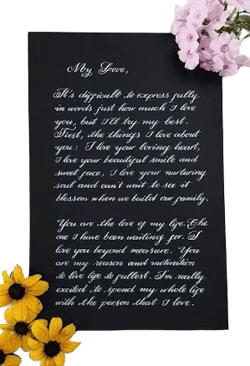 My Love,
It's difficult to express fully
in words just how much I love
you, but I'll try my best.
First, the things I love about
you: I love your loving heart,
I love your beautiful smile and
sweet face, I love your nurturing
soul and can't wait to see it
blossom when we build our family.
You are the love of my life. The
one I have been waiting for. I
love you beyond measure. You
are my reason and motivation
to live life to fullest. I'm really
excited to spend my whole life
with the person that I love.